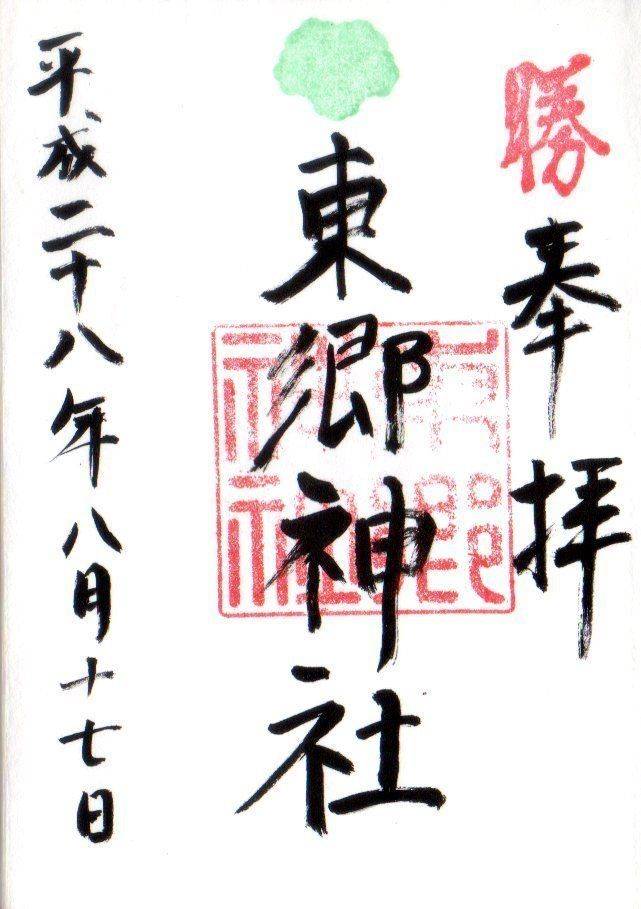 勝
奉拝
東郷神社
東郷神社
平成二十八年八月十七日